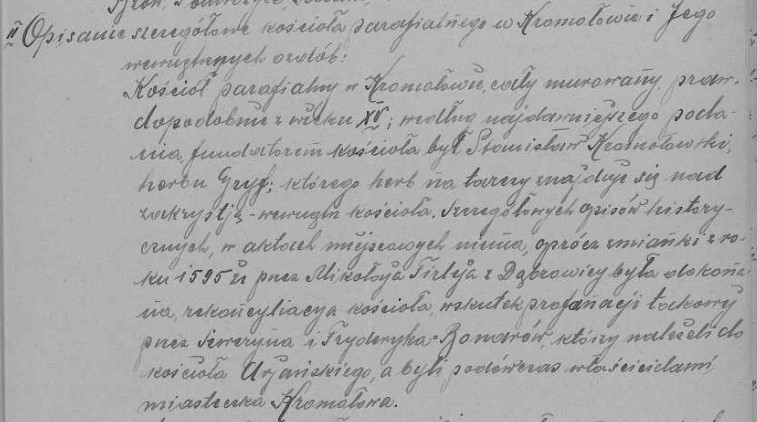 II Opisanie szczegółowe kościoła parafialnego w Kromołowie i Jego
wewnętrznych ozdób:
Kościół parafialny w Kromołowie, cały murowany, praw-
dopodobnie z wieku XV; według najdawniejszego poda-
nia, fundatorem kościoła był Stanisław Kromołowski,
herbu Gryf; którego herb na tarczy znajduje się nad
zakrystją - wewnątrz kościoła. Szczegółowych opisów history-
cznych, w aktach miejscowych niema, oprócz zmianki z ro-
ku 1595 że przez Mikołaja Firleja z Dąbrowicy była dokona-
na, rekoncyliacya kościoła, wskutek profanacji takowej
przez Seweryna i Fryderyka Bonarów, którzy należeli do
kościoła Aryańskiego, a byli podówczas właścicielami
miasteczka Kromołowa.